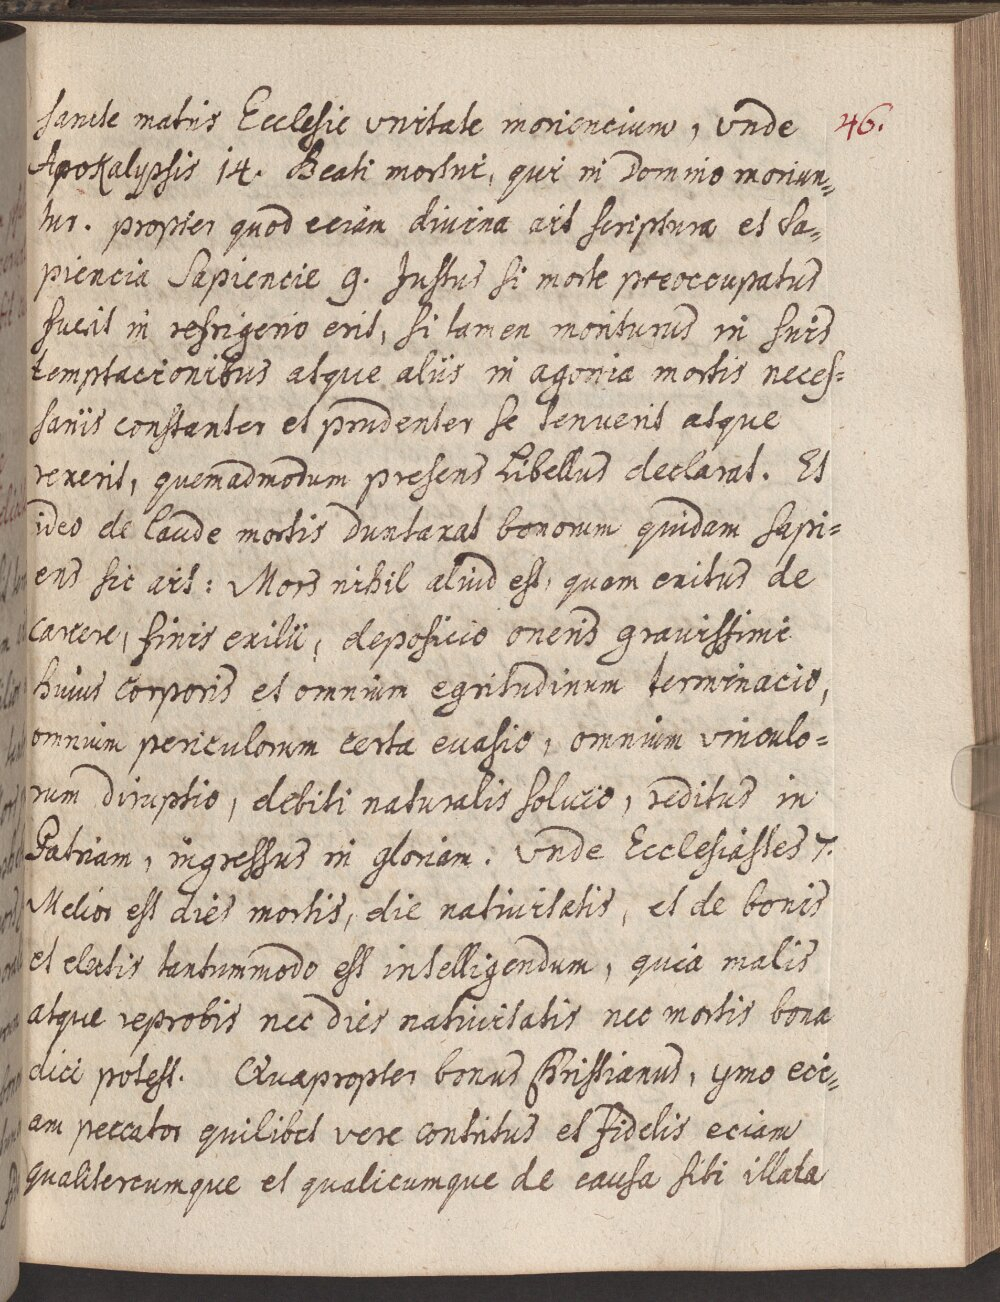 sancte matris Ecclesie vnitate moriencium, vnde 46.
Apokalypsis 14. Beati mortui, qui in Domino moriun=
tur. propter quod eciam divina ait scriptura et Sa=
piencia Sapiencie 9. Justus si morte preoccupatus
fuerit in refrigerio erit, si tamen moriturus in suis
temptacionibus atque aliis in agonia mortis neces=
sariis constanter et prudenter se tenuerit atque
rexerit, quemadmodum presens Libellus declarat. Et
ideo de laude mortis duntaxat bonorum quidam sapi=
ens sic ait: Mors nihil aliud est, quam exitus de
carcere, finis exilii, deposicio oneris gravissimi
huius corporis et omnium egritudinum terminacio,
omnium periculorum certa euasio, omnium vinculo=
rum diruptio, debiti naturalis solucio, reditus in
Patriam, ingressus in gloriam. Vnde Ecclesiastes 7.
Melior est dies mortis, die nativitatis, et de bonis
et electis tantummodo est intelligendum, quia malis
atque reprobis nec dies nativitatis nec mortis bona
dici potest. Quapropter bonus Christianus, ymo eci=
am peccator quilibet vere contritus et fidelis eciam
qualitercumque et qualicumque de causa sibi illata